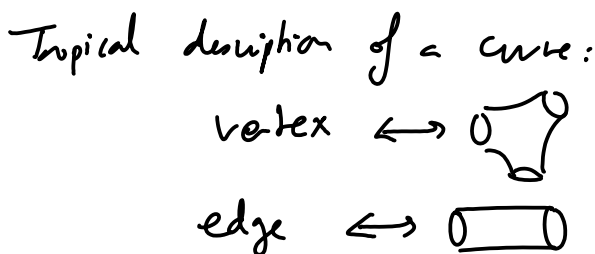 Tropical description of a curve:
vertex ↔
edge ↔